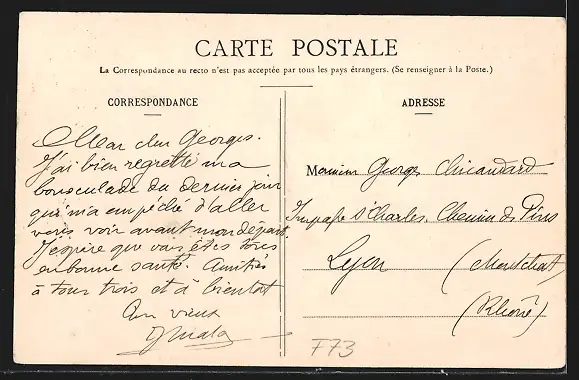 CARTE POSTALE
La Correspondance au recto n'est pas acceptée par tous les pays étrangers. (Se renseigner à la Poste.)
CORRESPONDANCE
Mon cher Georges.
J'ai bien regretté ma
bousculade du dernier jour
qui m'a empêché d'aller
vous voir avant mon départ.
J'espère que vous êtes tous
en bonne santé. Amitiés
à tous trois et à bientôt
Ton vieux
ADRESSE
Monsieur Georges
Impasse St Charles. Chemin des Pins
Lyon (Montchat)
(Rhône)
F73